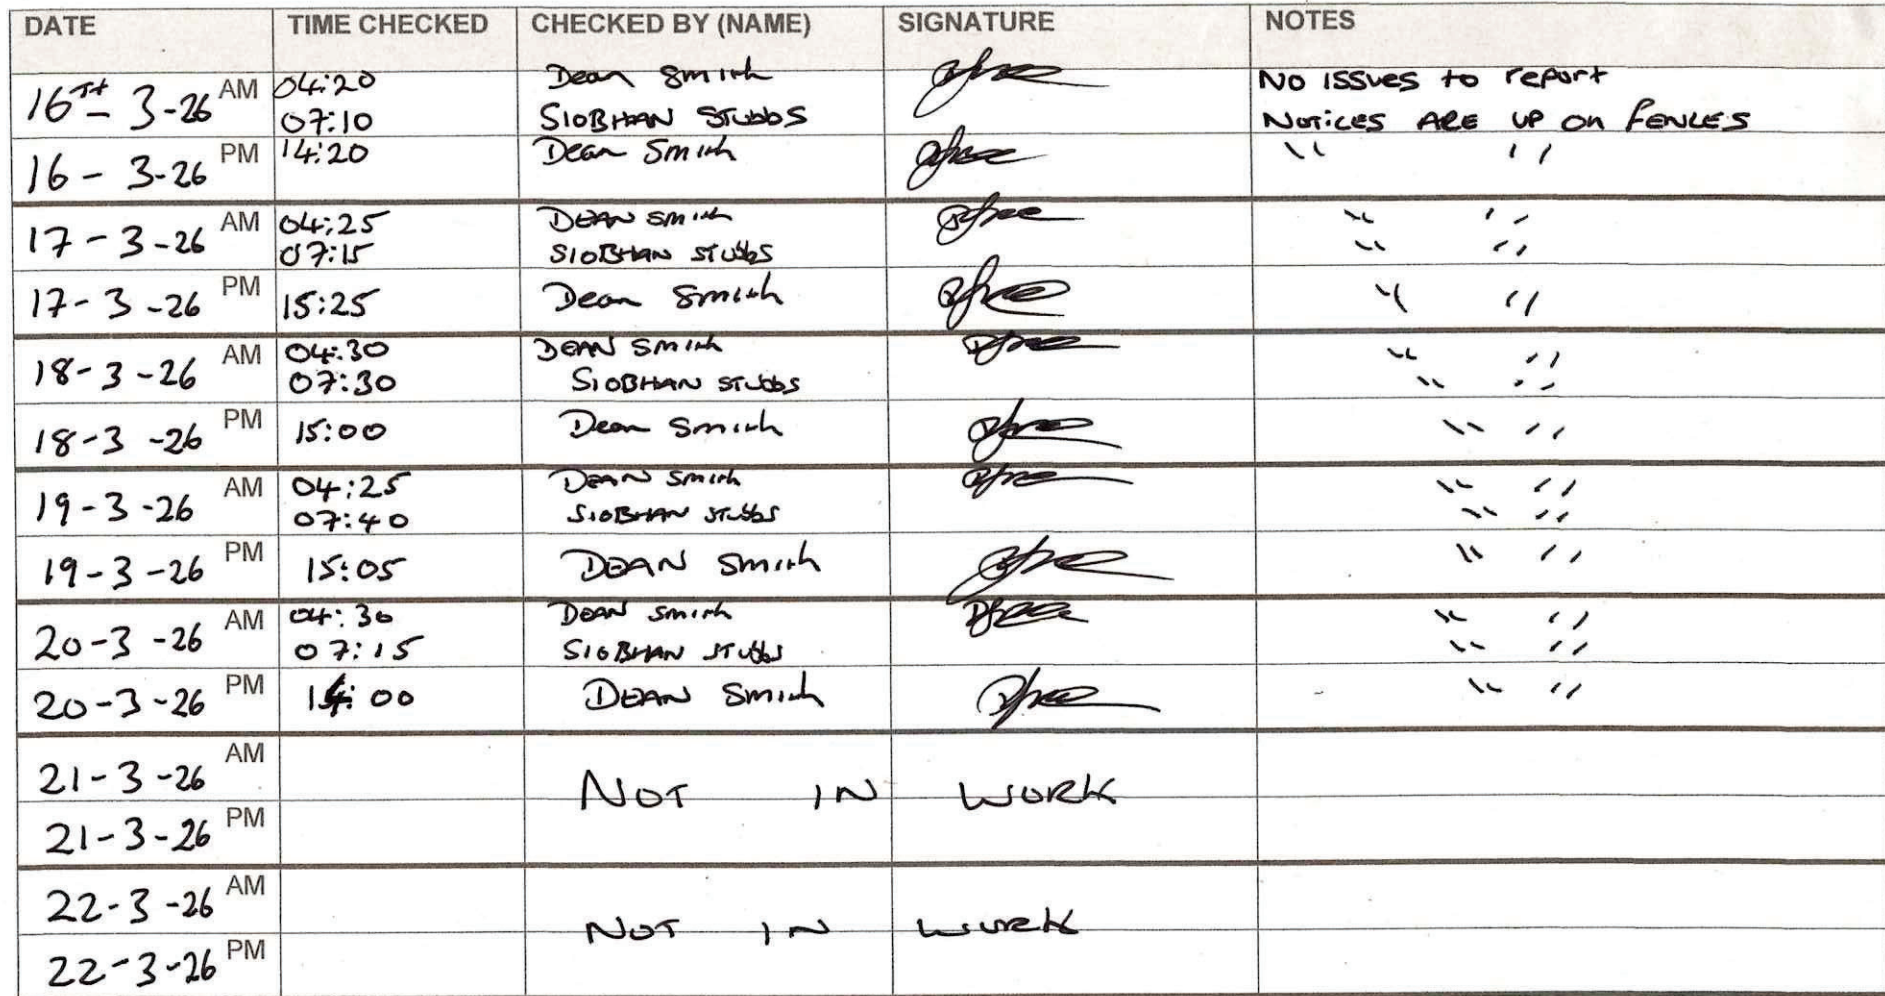 DATE TIME CHECKED CHECKED BY (NAME) SIGNATURE NOTES
16TH 3-26 AM 04:20 Dean Smith No issues to report
07:10 SIOBHAN STUBBS NOTICES ARE UP ON FENCES
16-3-26 PM 14:20 Dean Smith " "
17-3-26 AM 04:25 DEAN SMITH " "
07:15 SIOBHAN STUBBS " "
17-3-26 PM 15:25 Dean Smith " "
18-3-26 AM 04:30 DEAN SMITH " "
07:30 SIOBHAN STUBBS " "
18-3-26 PM 15:00 Dean Smith " "
19-3-26 AM 04:25 DEAN SMITH " "
07:40 SIOBHAN STUBBS " "
19-3-26 PM 15:05 DEAN Smith " "
20-3-26 AM 04:30 DEAN SMITH " "
07:15 SIOBHAN STUBBS " "
20-3-26 PM 14:00 DEAN Smith " "
21-3-26 AM
NOT IN WORK
21-3-26 PM
22-3-26 AM
NOT IN WORK
22-3-26 PM